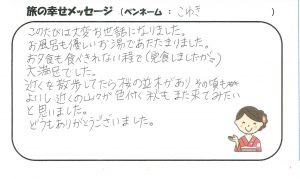 旅の幸せメッセージ（ペンネーム：こゆき）
このたびは大変お世話になりました。
お風呂も優しいお湯であたたまりました。
お夕食も食べきれない程で（完食しましたが）
大満足でした。
近くを散歩してたら桜の並木があり その頃も
よいし 近くの山々が色付く秋も また来てみたい
と思いました。
どうもありがとうございました。